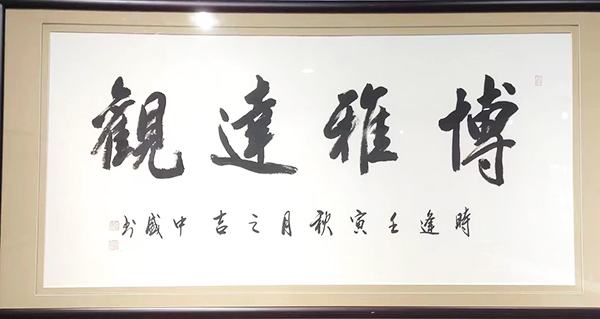 博雅達觀
時逢壬寅秋月之吉中盛书